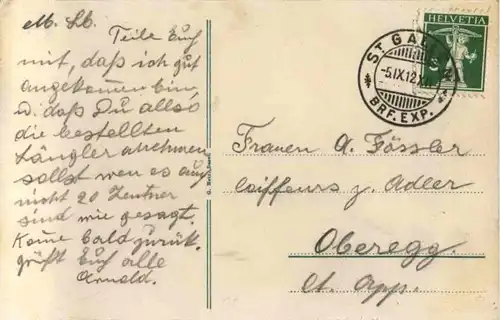 M. Lb.
Teile Euch
mit, daß ich gut
angekommen bin,
u. daß Du allso
die bestellten
Längler abnehmen
sollst wen es auch
nicht 20 Zentner
sind wie gesagt.
Kome bald zurük.
grüßt Euch alle
Arnold.
HELVETIA
ST GALLEN
-5.IX.12.
BRF. EXP.
Frauen A. Fässler
Coiffeurs z. Adler
Oberegg.
Ct. App.